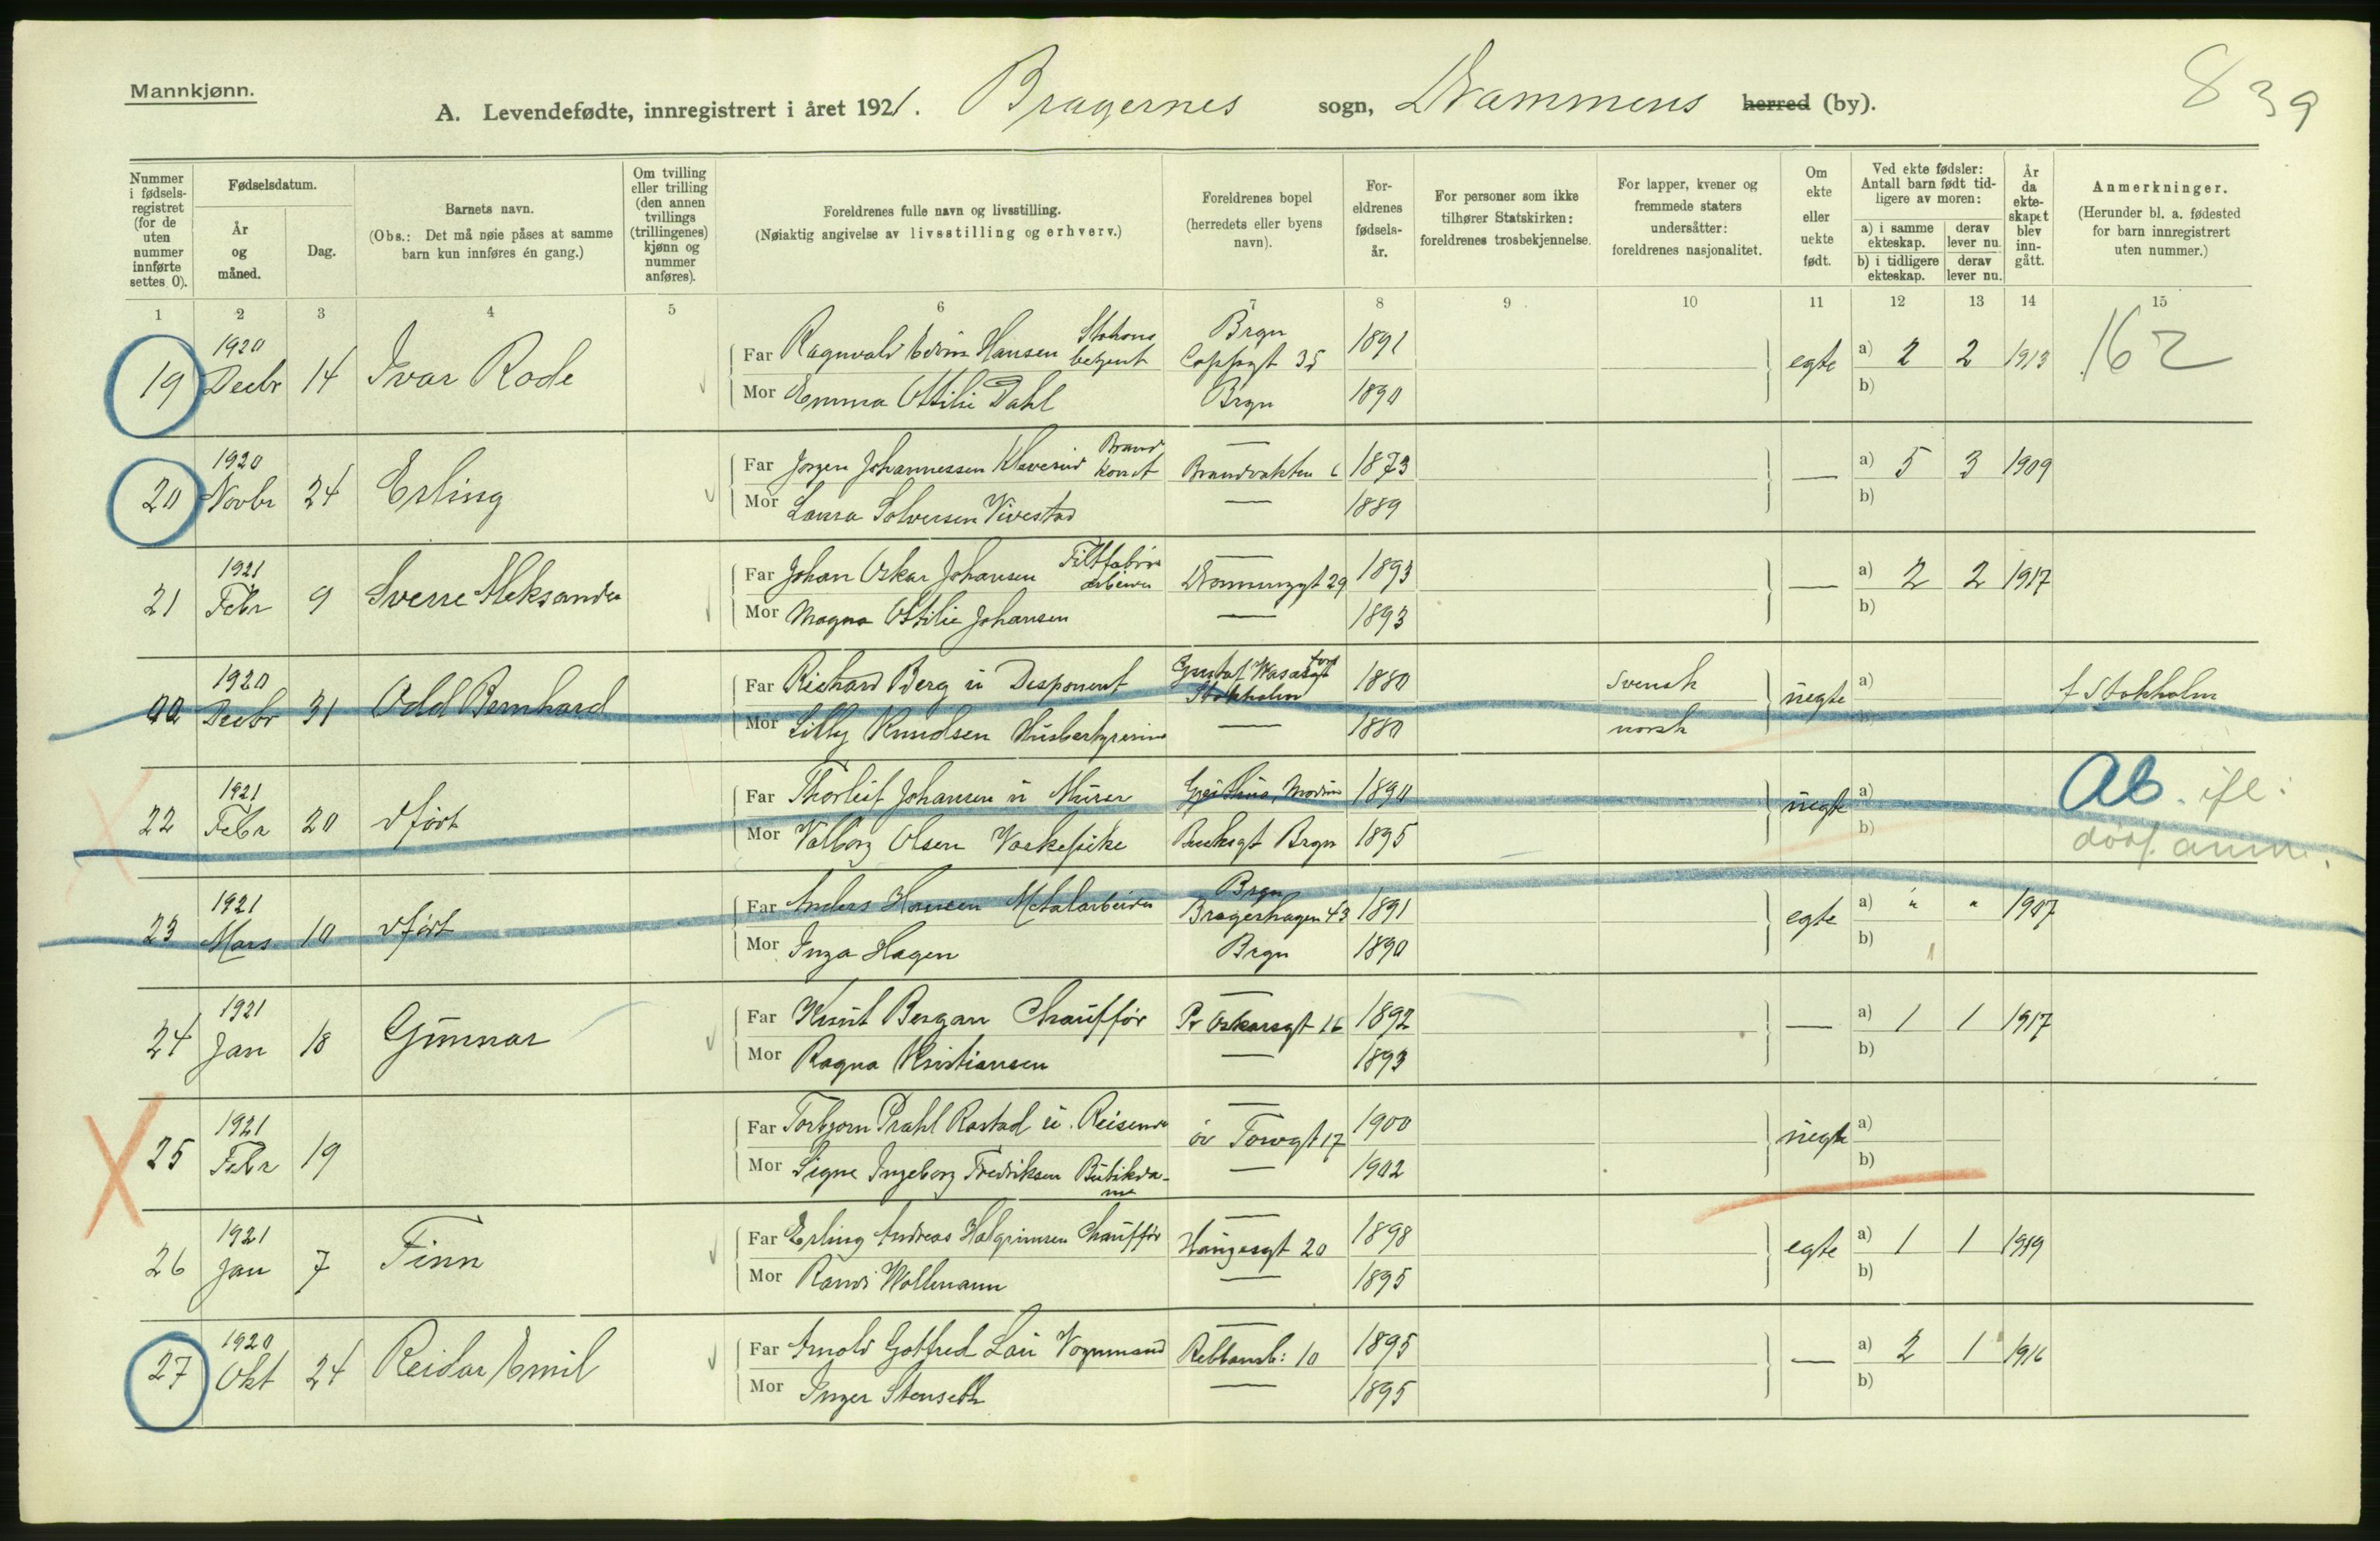 Mannkjønn.
839
A. Levendefødte, innregistrert i året 1921. Bragernes sogn, Drammens herred (by).
Nummer i fødsels-registret (for de uten nummer innførte settes 0).
Fødselsdatum.
År og måned.
Dag.
Barnets navn.
(Obs.: Det må nøie påses at samme barn kun innføres én gang.)
Om tvilling eller trilling (den annen tvillings (trillingenes) kjønn og nummer anføres).
Foreldrenes fulle navn og livsstilling.
(Nøiaktig angivelse av livsstilling og erhverv.)
Foreldrenes bopel
(herredets eller byens navn).
For-eldrenes fødsels-år.
For personer som ikke tilhører Statskirken: foreldrenes trosbekjennelse.
For lapper, kvener og fremmede staters undersåtter: foreldrenes nasjonalitet.
Om ekte eller uekte født.
Ved ekte fødsler: Antall barn født tid-ligere av moren:
a) i samme ekteskap.
derav lever nu.
b) i tidligere ekteskap.
derav lever nu.
År da ekte-skapet blev inn-gått.
Anmerkninger.
(Herunder bl. a. fødested for barn innregistrert uten nummer.)
1 2 3 4 5 6 7 8 9 10 11 12 13 14 15
19 1920 Decbr 14 Ivar Rode
Far Ragnvald Edvin Hansen Stations betjent Brgn Cappsgt 35 1891 egte a) 2 2 1913 162
Mor Emma Ottilie Dahl Brgn 1890 b)
20 1920 Novbr 24 Erling
Far Jørgen Johannessen Klaverud Brand konst — Brandvakten 6 1873 — a) 5 3 1909
Mor Laura Solversen Vivestad — 1889 b)
21 1921 Febr 9 Sverre Aleksander
Far Johan Oskar Johansen Filtfabrik arbeider — Drammensgt 29 1893 — a) 2 2 1917
Mor Magna Ottilie Johansen — 1893 b)
00 1920 Decbr 31 Odd Bernhard
Far Richard Berg u Disponent Gustaf Wasasgt Stokholm 1880 svensk uegte a) f Stokholm
Mor Lilly Knudsen Husbestyrerinne — 1880 norsk b)
22 1921 Febr 20 dført
Far Thorleif Johansen u Murer Modum 1890 uegte a) Ab. ifl:
Mor Valborg Olsen Vaskepike Busksgt Brgn 1895 b) døds. anm.
23 1921 Mars 10 dført
Far Anders Hansen Metalarbeider Brgn Bragerhagen 43 1891 egte a) " " 1907
Mor Inga Hagen Brgn 1890 b) 1
24 1921 Jan 18 Gunnar
Far Knut Bergan Chauffør — Pr Oskarsgt 16 1892 — a) 1 1 1917
Mor Ragna Kristiansen — 1893 b)
25 1921 Febr 19
Far Torbjørn Prahl Rostad u. Reisende — øv Torvgt 17 1900 uegte a)
Mor Signe Ingeborg Fredriksen Butikda-me — 1902 b)
26 1921 Jan 7 Finn
Far Erling Andreas Halgrimsen Chauffør — Haugesgt 20 1898 egte a) 1 1 1919
Mor Randi Wollmann — 1895 b)
27 1920 Okt 24 Reidar Emil
Far Arnold Gotfred Lau Vognmand — Rebbansb: 10 1895 — a) 2 1 1916
Mor Inger Stenseth — 1895 b)